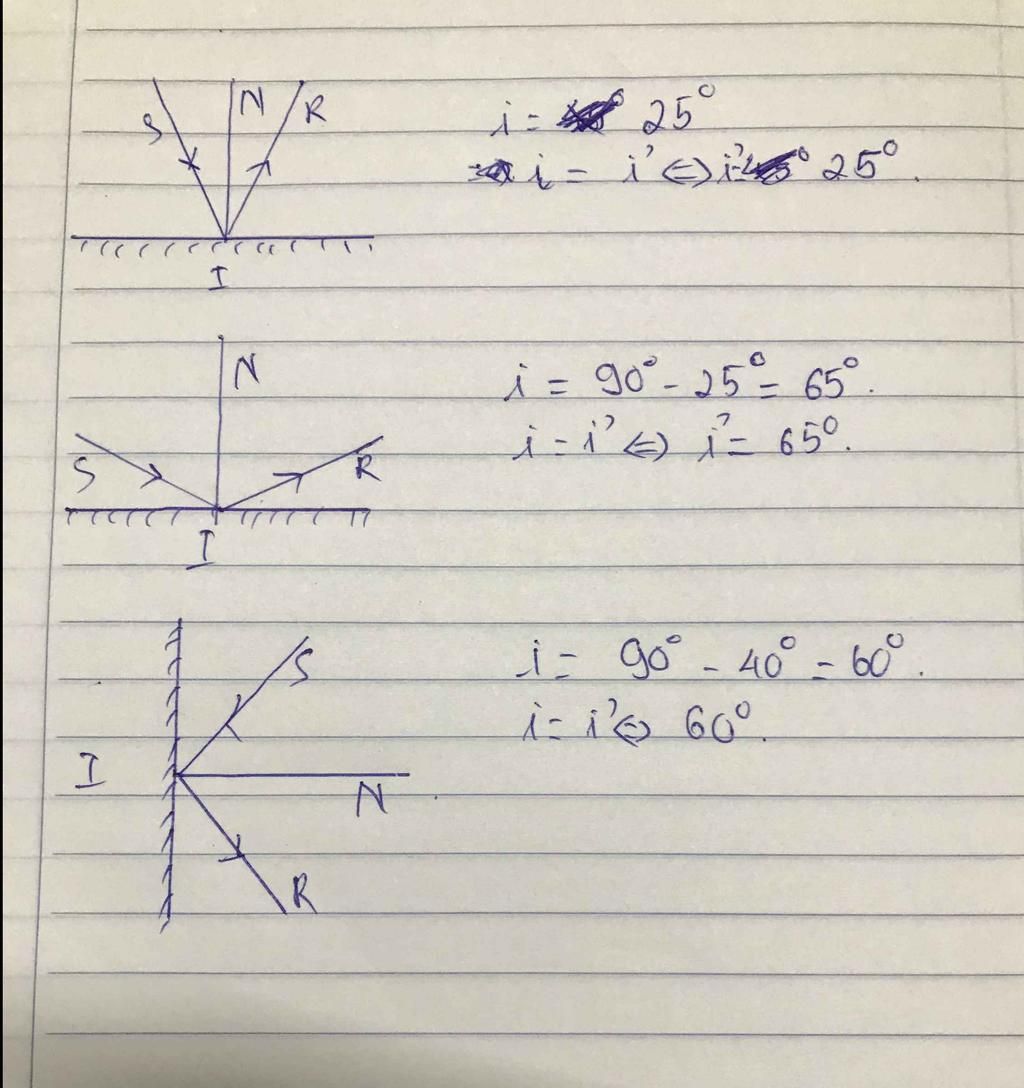 S N R
I
i = 25°
i = i' ⇔ i' = 25°.
N
S R
I
i = 90° - 25° = 65°.
i = i' ⇔ i' = 65°.
S
I
N
R
i = 90° - 40° = 60°.
i = i' ⇔ 60°.